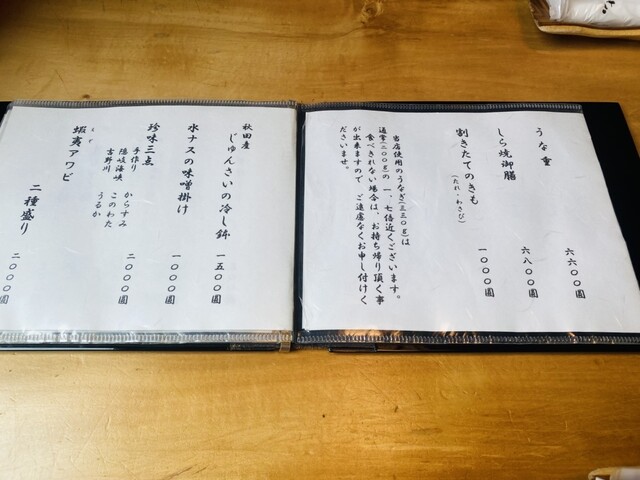 うな重 六六〇〇圓
しら焼御膳 六八〇〇圓
割きたてのきも 一〇〇〇圓
(たれ・わさび)
当店使用のうなぎ(三三〇g)は
通常(二〇〇g)の一、七倍近くございます。
食べきれない場合は、お持ち帰り頂く事
が出来ますので、ご遠慮なくお申し付けく
ださいませ。
秋田産
じゅんさいの冷し鉢 一五〇〇圓
水ナスの味噌掛け 一〇〇〇圓
珍味三点 二〇〇〇圓
手作り からすみ
隠岐海峡 このわた
吉野川 うるか
えぞ
蝦夷アワビ 二種盛り 二〇〇〇圓